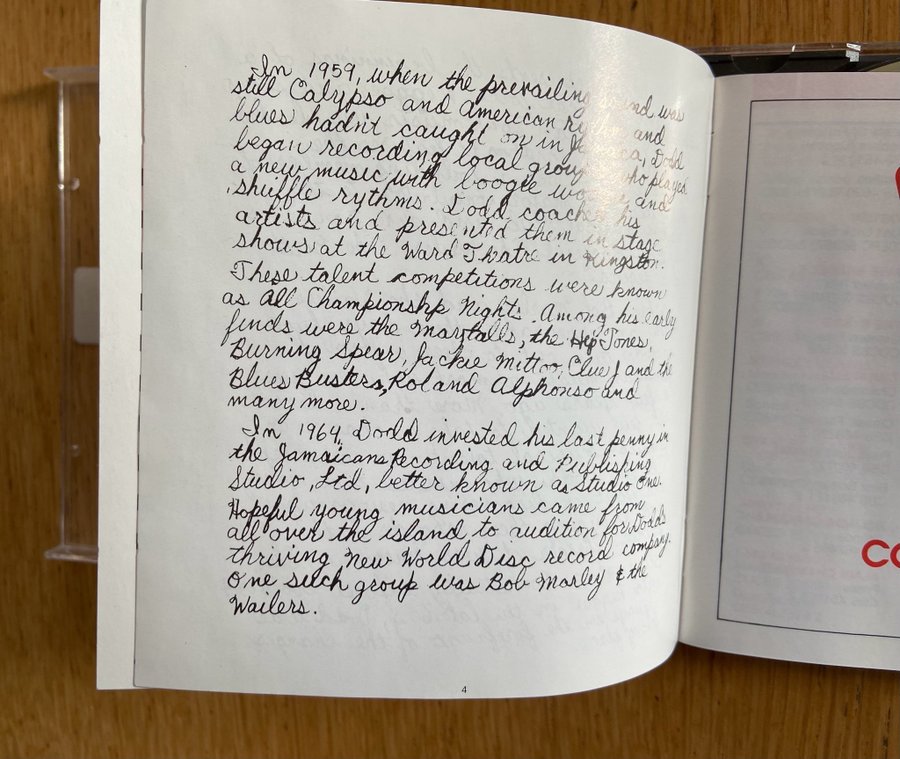 In 1959, when the prevailing sound was
still Calypso and American and
blues hadn't caught on in Jamaica, Dodd
began recording local groups who played
a new music with boogie woogie and
shuffle rythms. Dodd coached his
artists and presented them in stage
shows at the Ward Theatre in Kingston.
These talent competitions were known
as All Championship Nights. Among his early
finds were the Maytalls, the Hep Tones,
Burning Spear, Jackie Mittoo, Clue J and the
Blues Busters, Roland Alphonso and
many more.
In 1964, Dodd invested his last penny in
the Jamaicans Recording and Publishing
Studio, Ltd, better known as Studio One.
Hopeful young musicians came from
all over the island to audition for Dodd's
thriving New World Disc record company.
One such group was Bob Marley & the
Wailers.
4